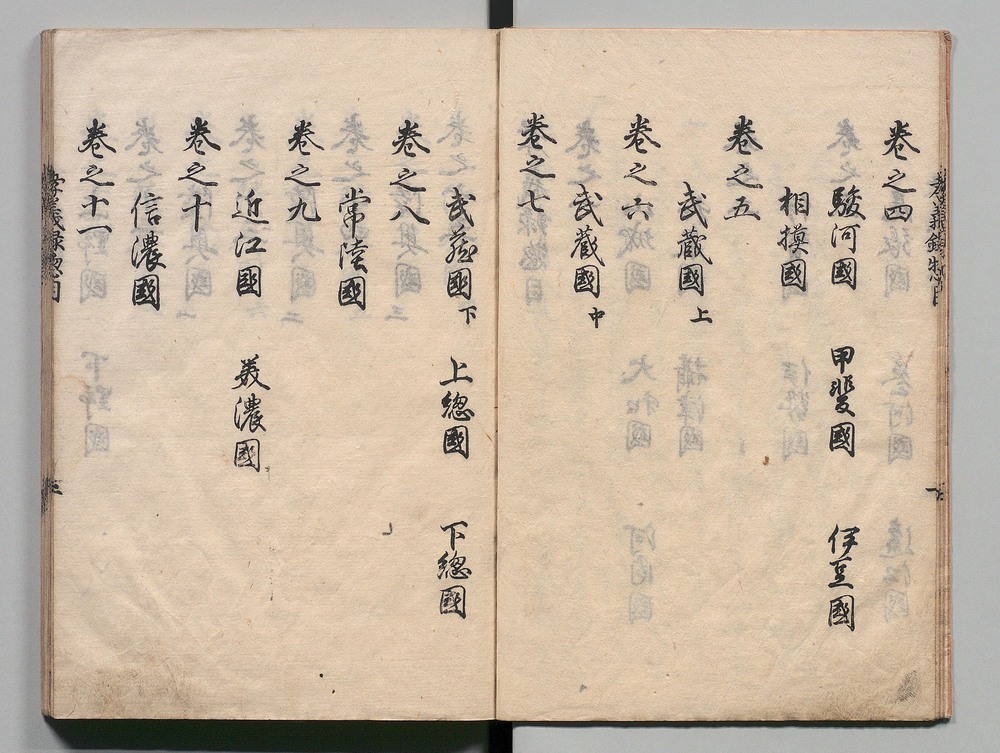 卷之四
駿河國 甲斐國 伊豆國
相摸國
卷之五
武藏國 上
卷之六
武藏國 中
卷之七
武藏國 下 上總國 下總國
卷之八
常陸國
卷之九
近江國 美濃國
卷之十
信濃國
卷之十一